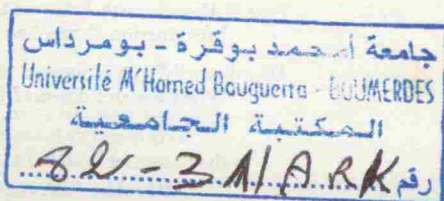 جامعة أمحمد بوقرة - بومرداس
Université M'Hamed Bouguerra - BOUMERDES
المكتبة الجامعية
رقم 82-31/ARK